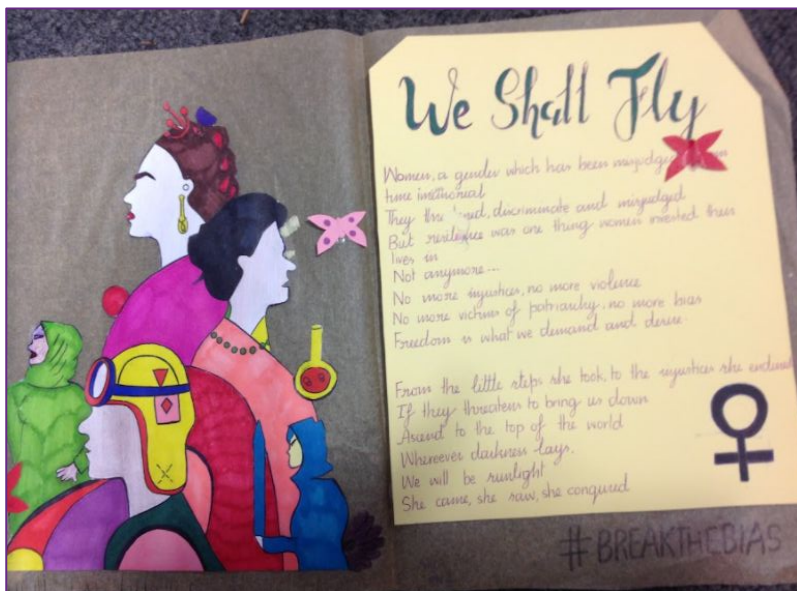 We Shall Fly
Women, a gender which has been misjudged
time immorial
They , discriminate and misjudged
But resilience was one thing women invested their
lives in
Not anymore...
No more injustices, no more violence
No more victims of patriarchy, no more bias
Freedom is what we demand and desire.
From the little steps she took, to the injustices she endured
If they threatens to bring us down
Ascend to the top of the world
Whereever darkness lays,
We will be sunlight
She came, she saw, she conqured
#BREAKTHEBIAS